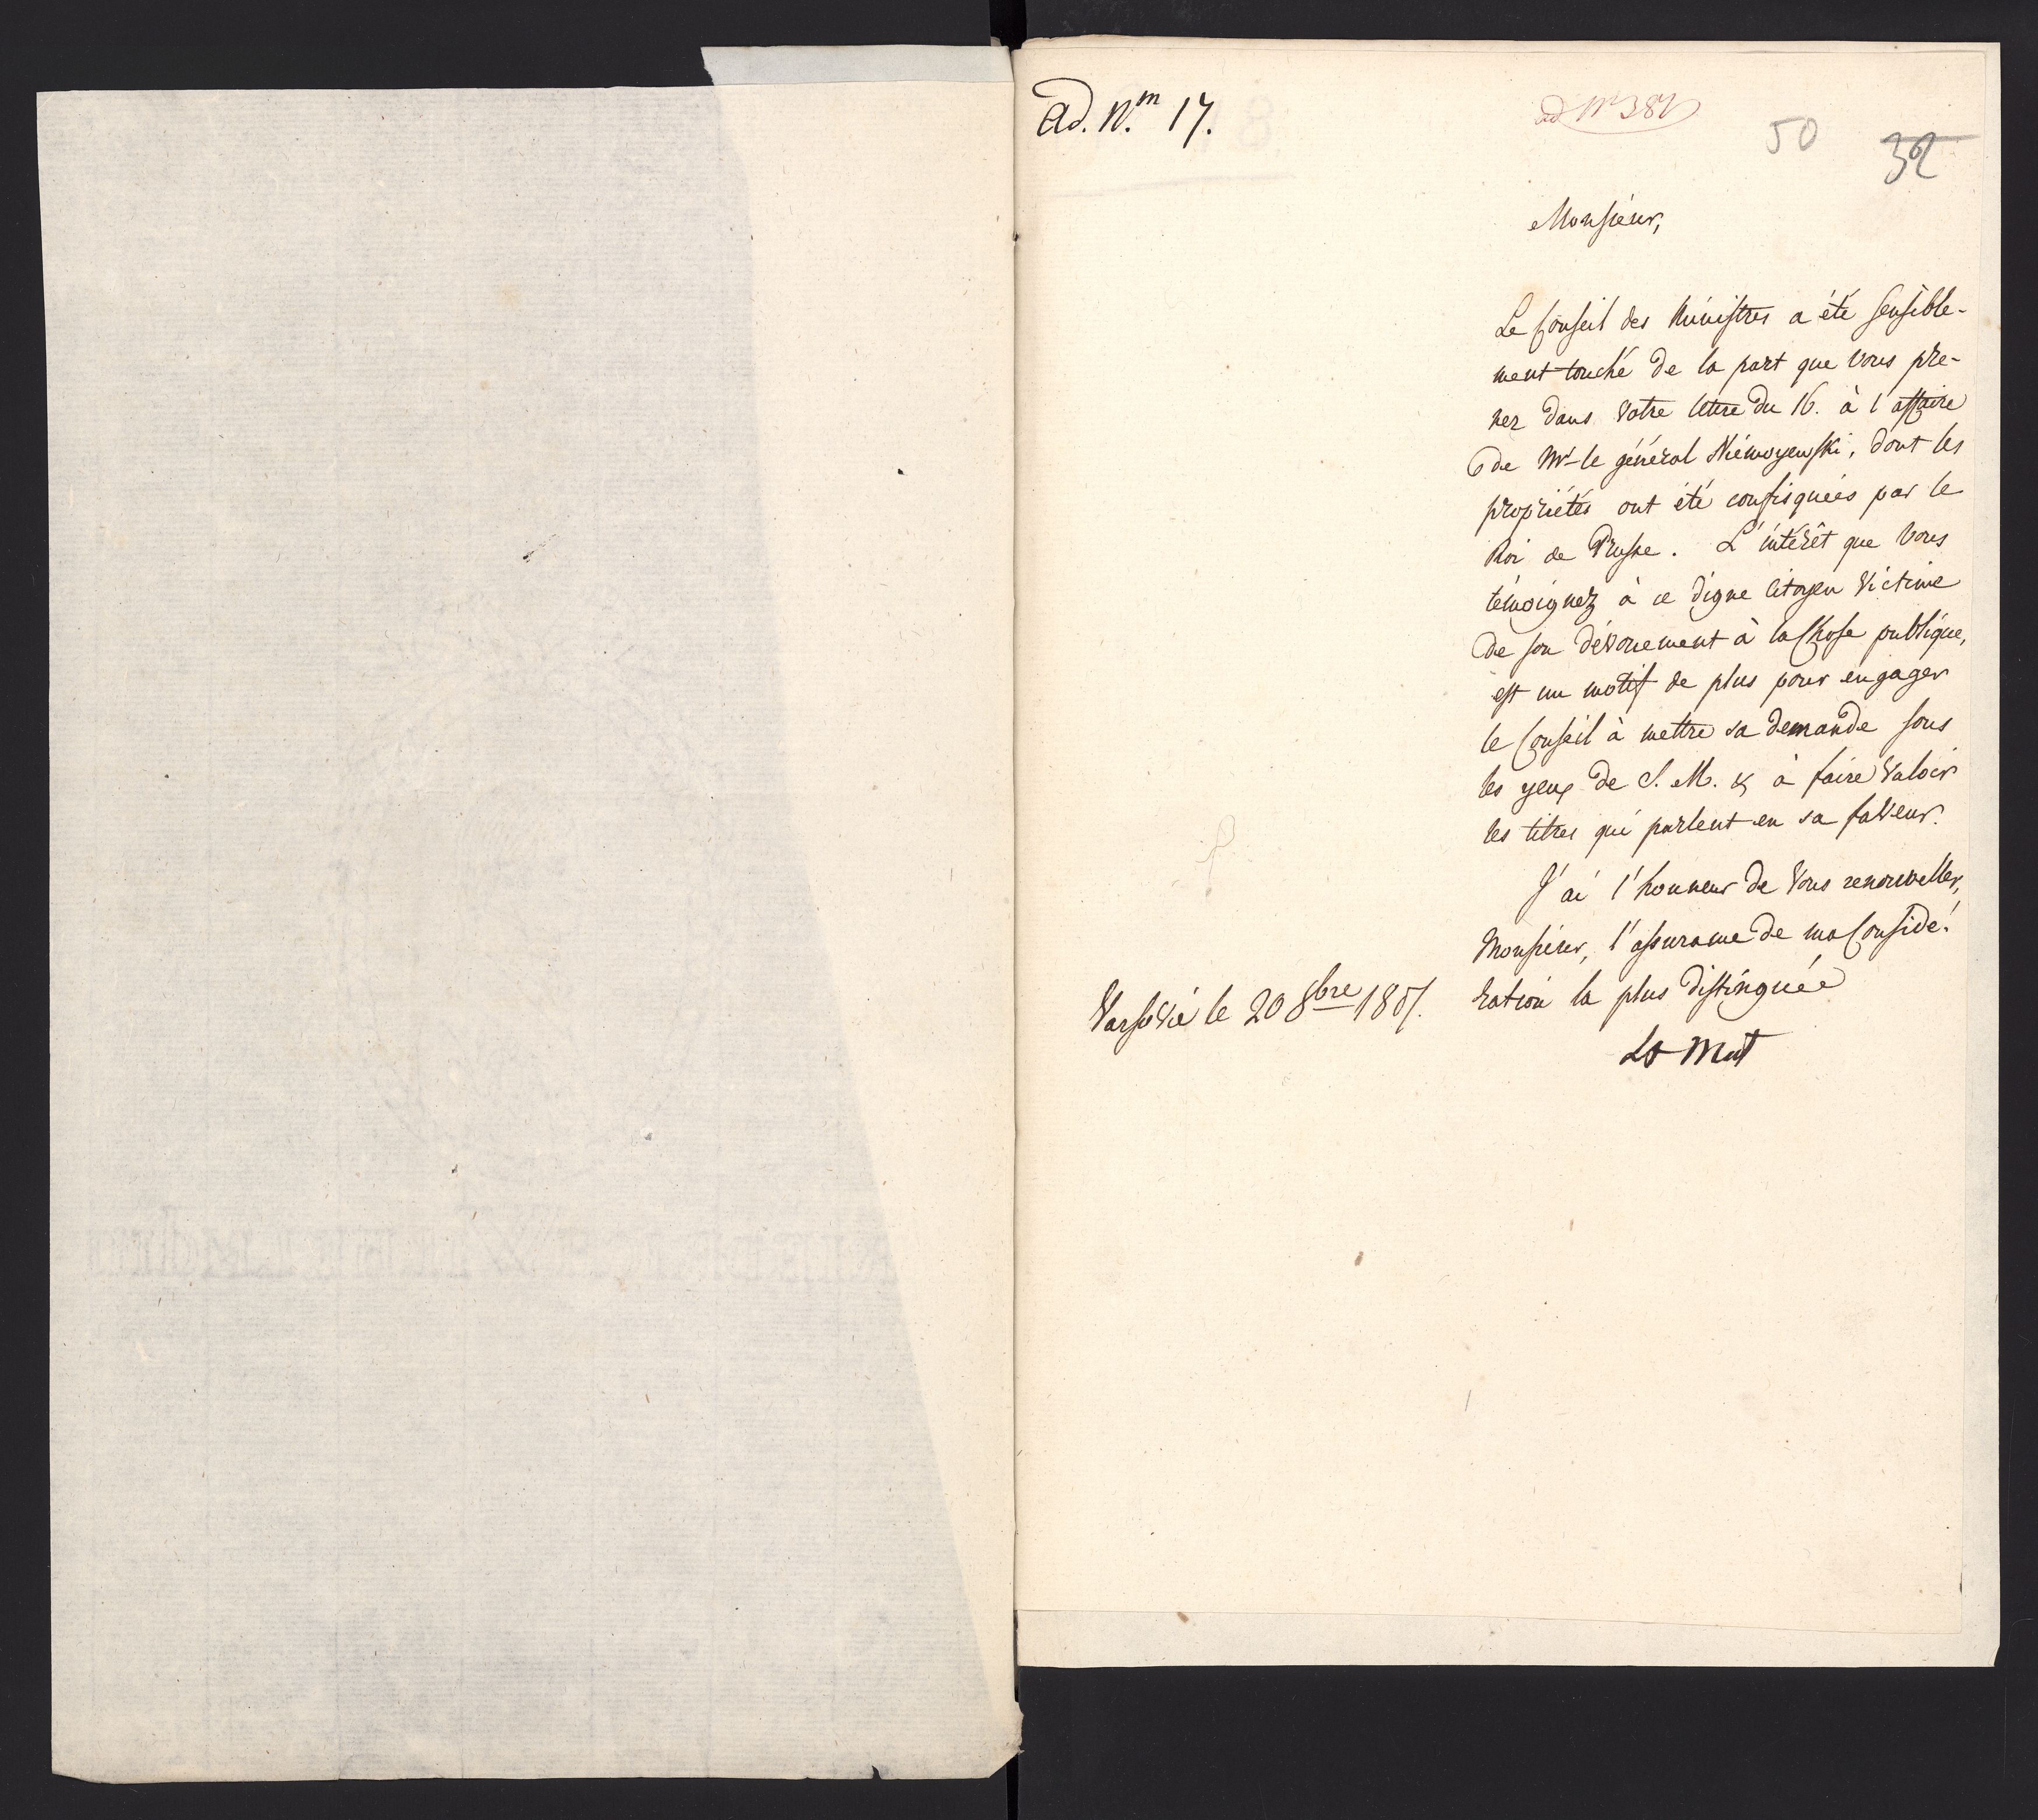 ad. N.m 17.
ad Nr 387
50
32
Monsieur,
Le Conseil des Ministres a été sensible-
ment touché de la part que Vous pre-
nez dans Votre lettre du 16. à l'affaire
de Mr le général Niémoyewski, dont les
propriétés ont été confisquées par le
Roi de Prusse. L'intérêt que Vous
témoignez à ce digne Citoyen Victime
de son dévouement à la Chose publique,
est un motif de plus pour engager
le Conseil à mettre sa demande sous
les yeux de S. M. & à faire Valoir
les titres qui parlent en sa faveur.
J'ai l'honneur de Vous renouveller,
Monsieur, l'assurance de ma Considé-
ration la plus distinguée
Varsovie le 20 8bre 1807.